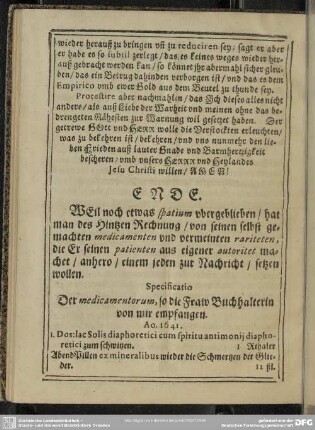 wieder herauß zu bringen vñ zu reduciren sey, sagt er aber
er habe es so subtil zerlegt, das es keines weges wieder her-
auß gebracht werden kan, so könnet jhr abermahl sicher glau-
ben, das ein Betrug dahinden verborgen ist, vnd das es dem
Empirico vmb ewer Gold aus dem Beutel zu thunde sey.
Protestire aber nachmahln, das Jch dieses alles nicht
anders, als auß Liebe der Warheit vnd meinem ohne das be-
drengeten Nähesten zur Warnung wil gesetzet haben. Der
getrewe Gott vnd HErr wolle die Verstockten erleuchten,
was zu bekehren ist, bekehren, vnd vns nunmehr den lie-
ben Frieden auß lauter Gnade vnd Barmhertzigkeit
bescheren, vmb vnsers HErrn vnd Heylandes
Jesu Christi willen, AMEN!
ENDE.
WEil noch etwas spatium vbergeblieben, hat
man des Hintzen Rechnung, von seinen selbst ge-
machten medicamenten vnd vermeinten rariteten,
die Er seinen patienten aus eigener autoritet ma-
chet, anhero, einem jeden zur Nachricht, setzen
wollen.
Specificatio
Der medicamentorum, so die Fraw Buchhalterin
von mir empfangen.
Ao. 1641.
1. Dos: lac Solis diaphoretici cum spiritu antimonij diapho-
retici zum schwitzen. 1 Rthaler
Abend Pillen ex mineralibus wieder die Schmertzen der Glie-
der. 12 ßl.